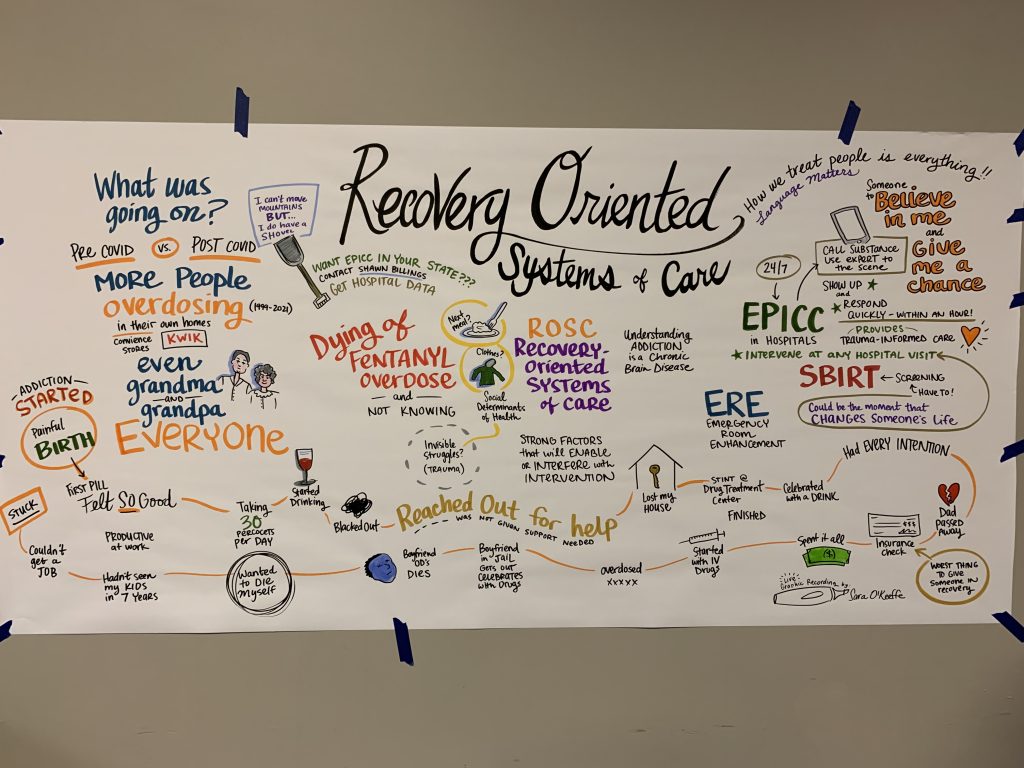 Recovery Oriented
Systems of Care
What was
going on?
PRE COVID vs. POST COVID
MORE People
overdosing (1999-2021)
in their own homes
CONVIENCE
STORES
KWIK
even
grandma
AND
grandpa
EVERYONE
I can't move
MOUNTAINS
BUT...
I do have a
SHOVEL
WANT EPICC IN YOUR STATE???
CONTACT SHAWN BILLINGS
GET HOSPITAL DATA
Dying of
FENTANYL
OVERDOSE
and
NOT KNOWING
Next
meal?
Clothes?
Social
Determinants
of Health
Invisible
Struggles?
(TRAUMA)
ROSC
Recovery-
Oriented
SYSTEMS
of CARE
STRONG FACTORS
that will ENABLE
or INTERFERE with
INTERVENTION
Understanding
ADDICTION
is a Chronic
Brain Disease
How we treat people is everything!!
Language Matters
Someone
to Believe
in me
and
Give
me a
chance
24/7
CALL SUBSTANCE
USE EXPERT TO
the SCENE
SHOW UP
and
RESPOND
QUICKLY-WITHIN AN HOUR!
EPICC
in HOSPITALS
PROVIDES
TRAUMA-INFORMED CARE
INTERVENE AT ANY HOSPITAL VISIT
SBIRT
SCREENING
HAVE TO!
Could be the moment that
CHANGES Someone's Life
ERE
EMERGENCY
ROOM
ENHANCEMENT
ADDICTION
STARTED
Painful
BIRTH
FIRST PILL
Felt SO Good
PRODUCTIVE
at WORK
Taking
30
PERCOCETS
PER DAY
Started
Drinking
Blacked Out
Reached Out for help
WAS NOT GIVEN SUPPORT NEEDED
Lost my
HOUSE
STINT @
Drug Treatment
Center
FINISHED
Celebrated
with a DRINK
Had EVERY INTENTION
Dad
PASSED
Away
Insurance
check
$$$
WORST THING
TO GIVE
Someone IN
recovery
Spent it all
($)
Started
with IV
Drugs
overdosed
xxxxx
Boyfriend
in JAIL
Gets out
CELEBRATES
with Drugs
Boyfriend
OD's
DIES
Wanted
to DIE
Myself
Hadn't seen
my KIDS
in 7 YEARS
Couldn't
get a
JOB
STUCK
Live
Graphic Recording by:
Sara O'Keeffe